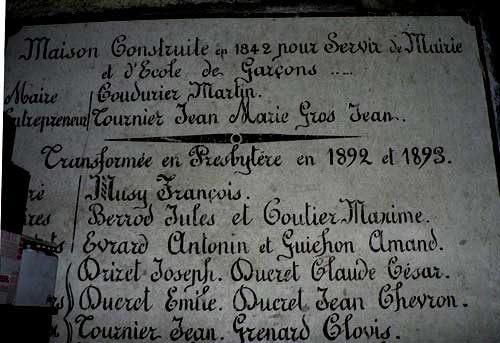 Maison Construite en 1842 pour Servir de Mairie
et d'Ecole de Garçons .....
Maire Coudurier Martin.
Entrepreneur Tournier Jean Marie Gros Jean.
Transformée en Presbytère en 1892 et 1893.
ré Musy François.
res Berrod Jules et Coutier Maxime.
ts Evrard Antonin et Guichon Amand.
Drizet Joseph. Ducret Claude César.
rs Ducret Emile. Ducret Jean Chevron.
x Tournier Jean. Grenard Clovis.